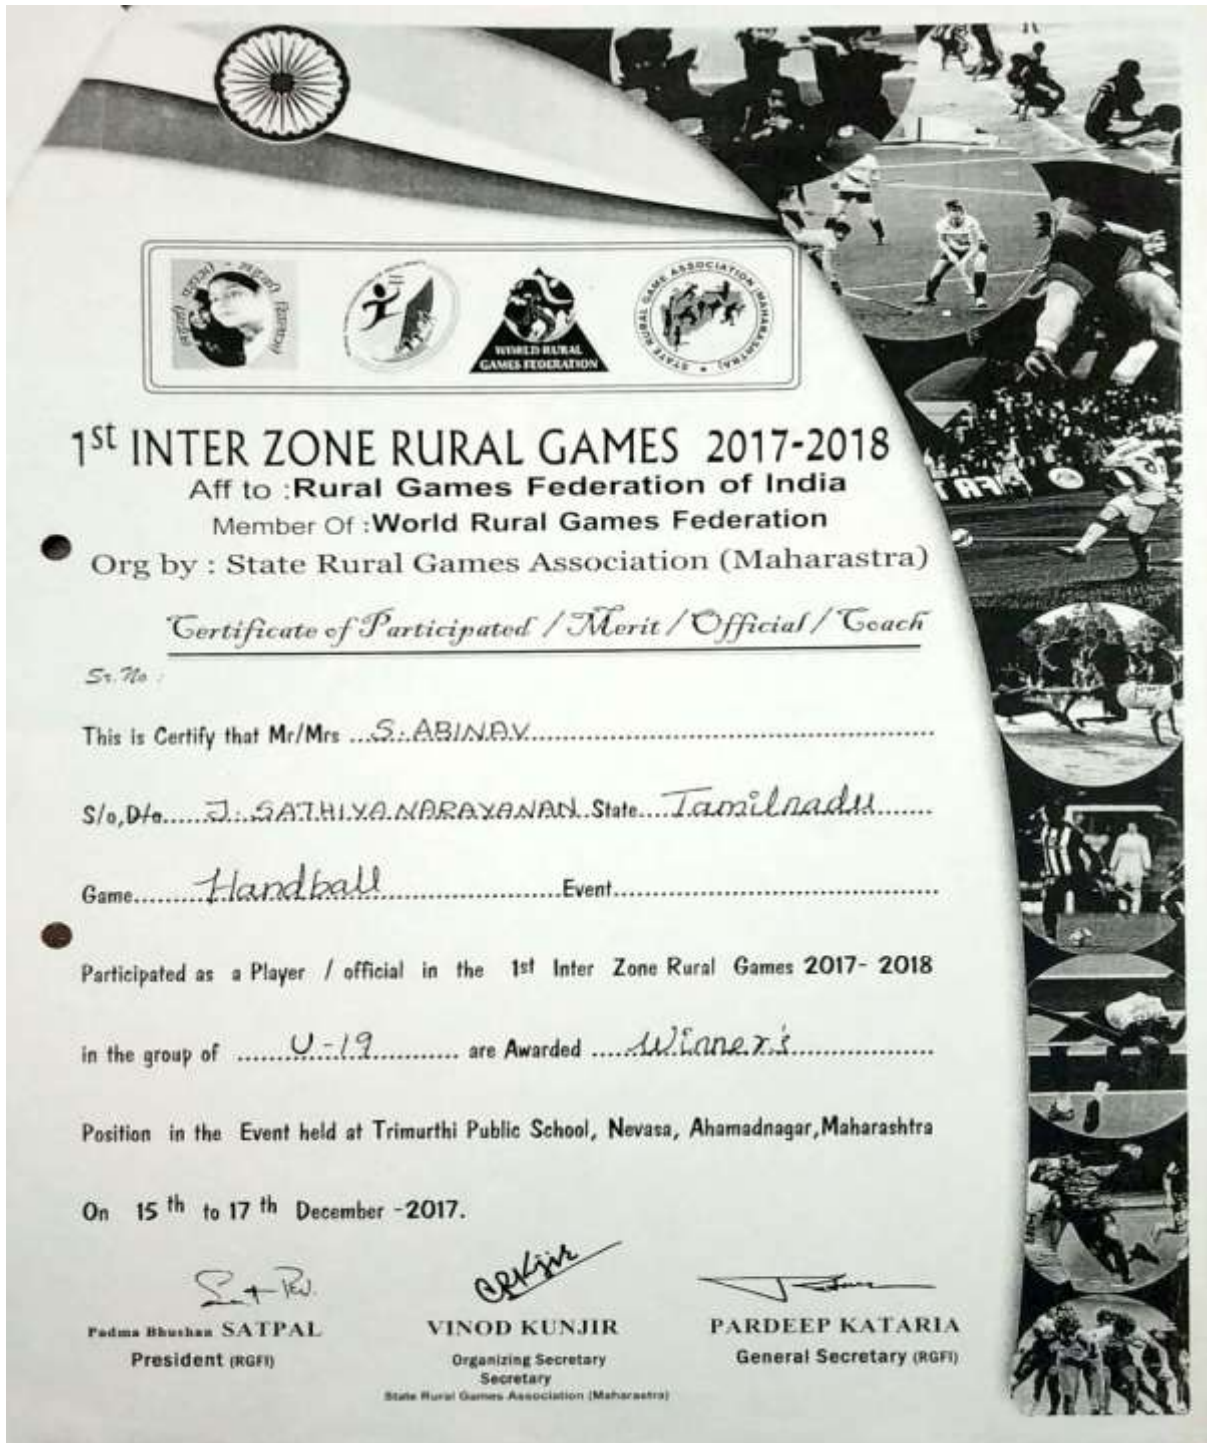 WORLD RURAL
GAMES FEDERATION
STATE RURAL GAME ASSOCIATION (MAHARASHTRA)
1st INTER ZONE RURAL GAMES 2017-2018
Aff to :Rural Games Federation of India
Member Of :World Rural Games Federation
Org by : State Rural Games Association (Maharastra)
Certificate of Participated / Merit / Official / Coach
Sr. No :
This is Certify that Mr/Mrs ...S. ABINAV...
S/o,D/o...J. SATHIYANARAYANAN..State...Tamilnadu...
Game...Handball...Event...
Participated as a Player / official in the 1st Inter Zone Rural Games 2017- 2018
in the group of ...U-19... are Awarded ...Winner's...
Position in the Event held at Trimurthi Public School, Nevasa, Ahamadnagar,Maharashtra
On 15 th to 17 th December -2017.
Padma Bhushan SATPAL VINOD KUNJIR PARDEEP KATARIA
President (RGFI) Organizing Secretary General Secretary (RGFI)
Secretary
State Rural Games Association (Maharastra)